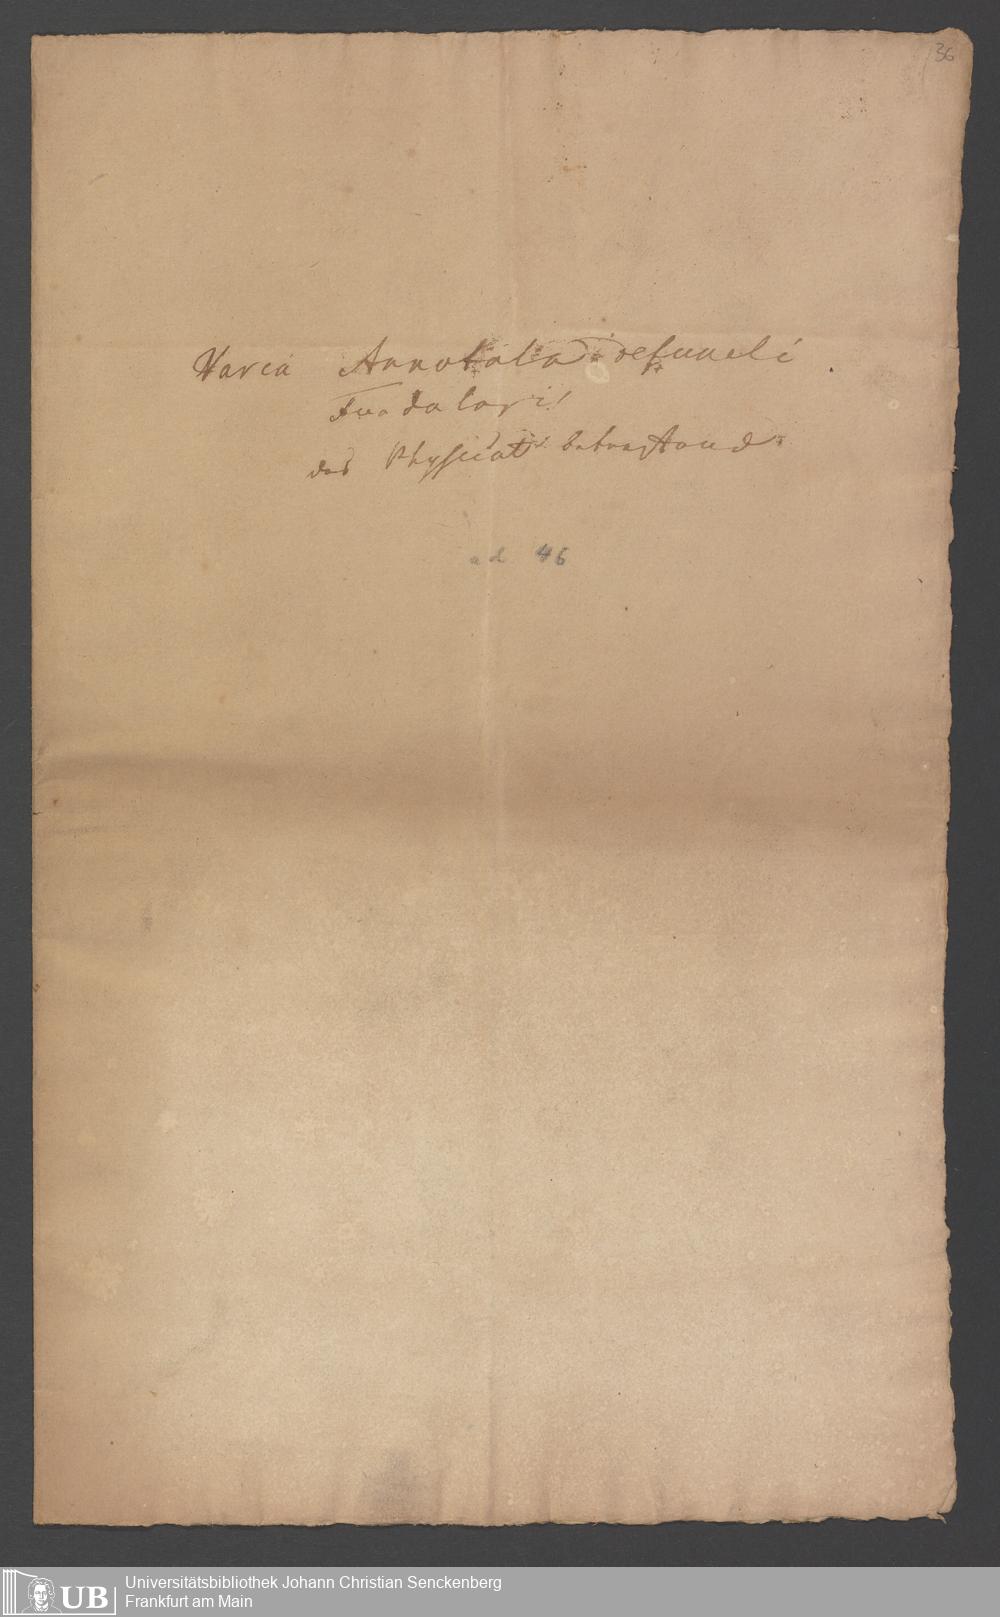 36
Varia Annotata defuncti
Fundatoris
das Physicat betreffend.
ad 46
UB
Universitätsbibliothek Johann Christian Senckenberg
Frankfurt am Main